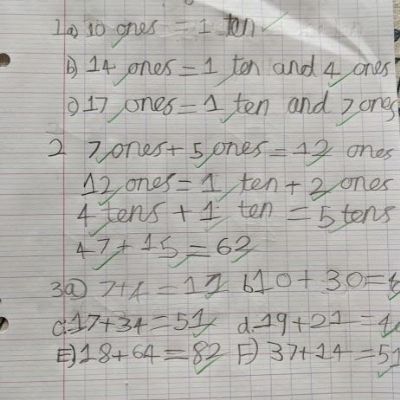 1a) 10 ones = 1 ten
b) 14 ones = 1 ten and 4 ones
c) 17 ones = 1 ten and 7 ones
2 7 ones + 5 ones = 12 ones
12 ones = 1 ten + 2 ones
4 tens + 1 ten = 5 tens
47 + 15 = 62
3a) 7+4 = 11 b 10 + 30 =
c. 17+34 = 51 d. 19 + 21 =
E) 18 + 64 = 82 F) 37+14 = 51